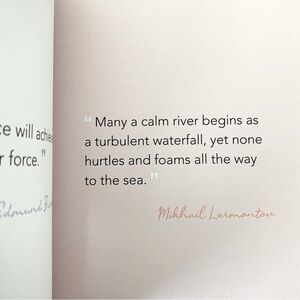 ce will achie
r force."
Edmund
"Many a calm river begins as
a turbulent waterfall, yet none
hurtles and foams all the way
to the sea."
Mikhail Lermontov